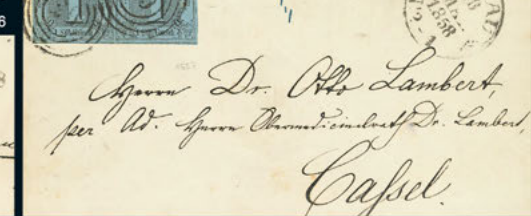 6
1858
Herrn Dr. Otto Lambert,
per Ad. Herrn Obermedicinalrath Dr. Lambert,
Caſsel.